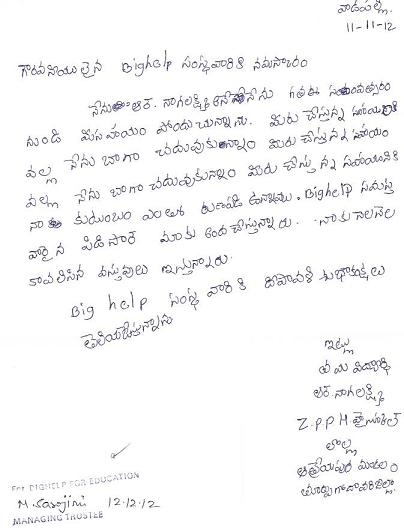 వాడపల్లి.
11-11-12
గౌరవనీయులైన Bighelp సంస్థవారికి నమస్కారం
నేను ఆర్. నాగలక్ష్మి అనే నేను గత సంవత్సరం
నుండి మీ సహాయం పొందుచున్నాను. మీరు చేస్తున్న
వల్ల నేను బాగా చదువుకుంటున్నాం మీరు చేస్తున్న సహాయం
వల్ల నేను బాగా చదువుకుంటున్నాం మీరు చేస్తున్న సహాయానికి
నా కుటుంబం ఎంతో ఉన్నాము. Bighelp సమస్త
వారైన మాకు అంద చేస్తున్నారు. నాకు నెలనెల
కావలిసిన వస్తువులు ఇస్తున్నారు.
Big help సంస్థ వారికి దీపావళి శుభాకాంక్షలు
తెలియజేస్తున్నాను
ఇట్లు
మీ విద్యార్థి
ఆర్. నాగలక్ష్మి
Z.P.P.H. హైస్కూల్
లొల్ల
ఆత్రేయపురం మండలం
తూర్పుగోదావరిజిల్లా.
For BIGHELP FOR EDUCATION
M. Sarojini 12.12.12
MANAGING TRUSTEE